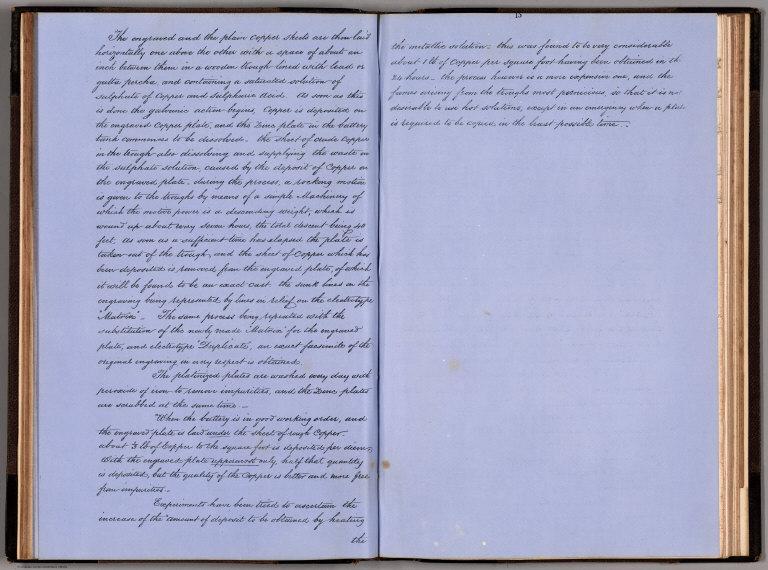 The engraved and the plain Copper Sheets are then laid
horizontally one above the other with a space of about an
inch between them in a wooden trough lined with lead or
gutta percha, and containing a saturated solution of
sulphate of Copper and Sulphuric Acid. As soon as this
is done the galvanic action begins, Copper is deposited on
the engraved Copper plate, and this Zinc plate in the battery
tank commences to be dissolved. the Sheet of crude Copper
in the trough also dissolving and supplying the waste in
the sulphate solution, caused by the deposit of Copper on
the engraved plate. during the process, a rocking motion
is given to the troughs by means of a simple Machinery of
which the motive power is a descending weight, which is
wound up about every seven hours, the total descent being 40
feet. As soon as a sufficient time has elapsed the plate is
taken out of the trough, and the sheet of Copper which has
been deposited is removed from the engraved plate, of which
it will be found to be an exact cast. the sunk lines in the
engraving being represented by lines in relief on the electrotype
'Matrix'. The same process being repeated with the
substitution of the newly made 'Matrix' for the engraved
plate, and electrotype 'Duplicate', an exact facsimile of the
original engraving in every respect is obtained.
The platinized plates are washed every day with
peroxide of iron to remove impurities, and the Zinc plates
are scrubbed at the same time.
When the battery is in good working order, and
the engraved plate is laid under the sheet of rough Copper
about ¾ lb of Copper to the square foot is deposited per diem.
With the engraved plate uppermost only half that quantity
is deposited, but the quality of the Copper is better and more free
from impurities.
Experiments have been tried to ascertain the
increase of the amount of deposit to be obtained by heating
the
15
the metallic solution: this was found to be very considerable
about 1 lb of Copper per square foot having been obtained in
24 hours. the process however is a more expensive one, and the
fumes arising from the troughs most pernicious, so that it is
desirable to use hot solutions, except in an emergency when a plate
is required to be copied in the least possible time.